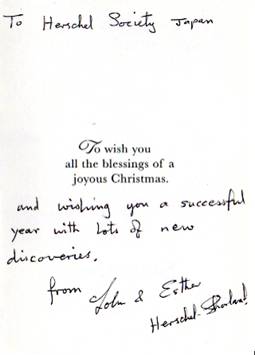 To Herschel Society Japan
To wish you
all the blessings of a
joyous Christmas.
and wishing you a successful
year with lots of new
discoveries.
from John & Esther
Herschel-Shorland